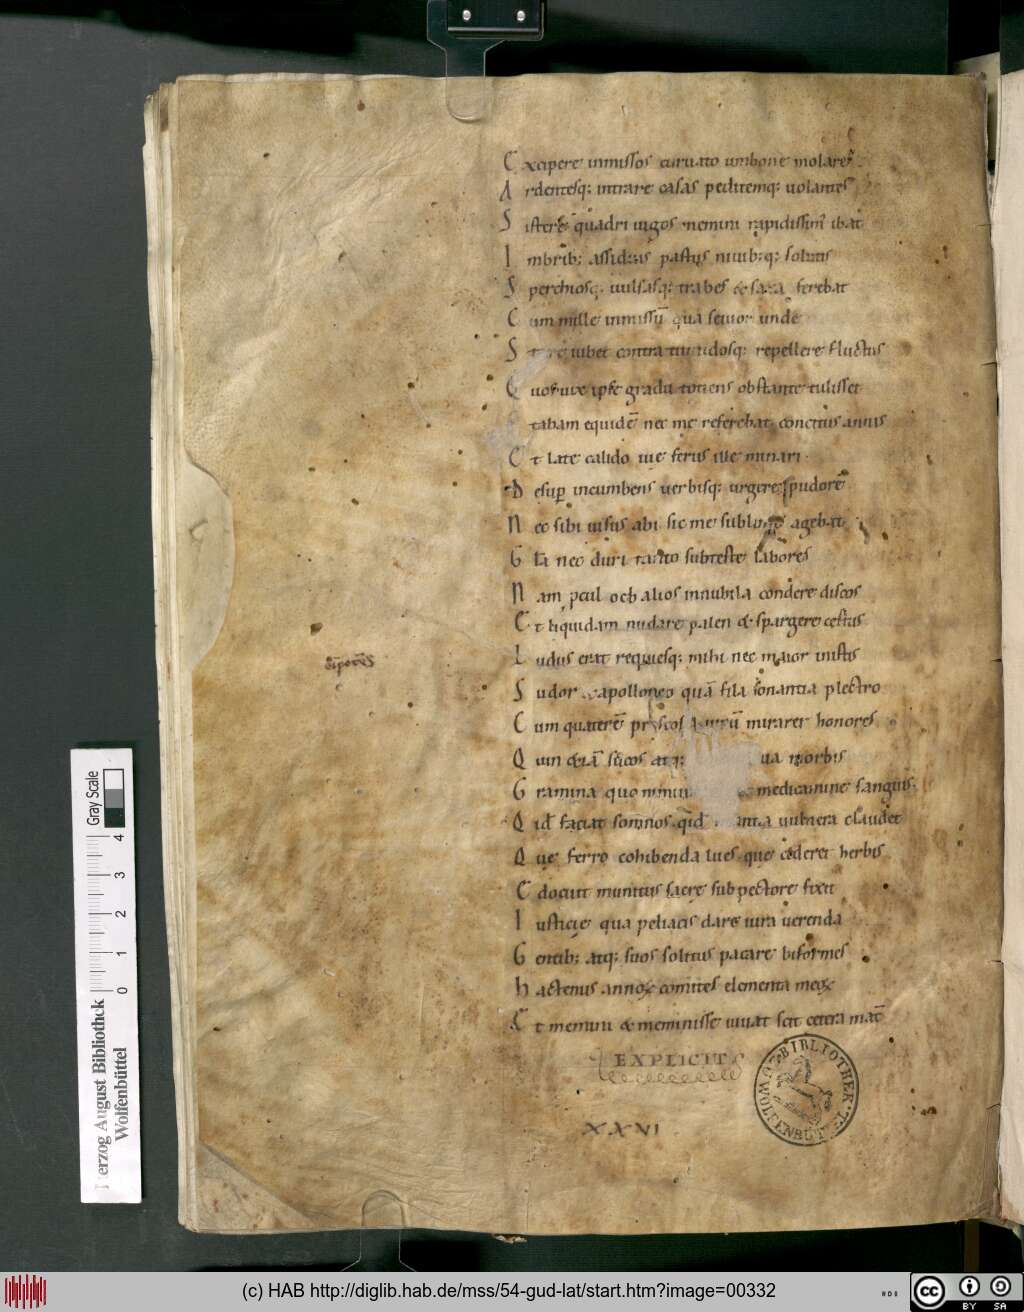 E xcipere inmissos curuato umbone molares
A rdentesq; intrare casas peditemq; uolantes
S istere quadriiugos memini rapidissim' ibat
I mbrib; assiduis pastus niuib;q; solutis
S perchiosq; uulsasq; trabes & saxa ferebat
C um mille inmissū qua seuior unde
S t iubet contra tumidosq; repellere fluctus
Q uos uix ipse gradu totiens obstante tulisset
tabam equidē nec me referebat concitus annis
E t late calido uie ferus ille minari
D esup incumbens uerbisq; urgere pudorē
N ec sibi uisus abi sic me agebat
G la nec duri tanto subteste labores
N am pcul oeb alios innubila condere discos
E t liquidam nudare palen & spargere cestus
L udus erat requiesq; mihi nec maior inistis
S udor apollineo quā fila sonantia plectro
C um quaterē priscos uirū mirarer honores
Q uin &iā sūcos atq; ua morbis
G ramina quo nimius medicamine sanguis
Q id faciat somnos qid uulnera claudet
Q ue ferro cohibenda lues que cederet herbis
E docuit munitus sacre sub pectore fixit
I usticie qua peliacis dare iura uerenda
G entib; atq; suos solitus pacare biformes
H actenus annoꝝ comites elementa meoꝝ
E t memini & meminisse iuuat scit cetera mat̄
EXPLICIT
XXVI
BIBLIOTHEK Z. WOLFENBÜTTEL
Gray Scale
0 1 2 3 4
Herzog August Bibliothek
Wolfenbüttel
(c) HAB http://diglib.hab.de/mss/54-gud-lat/start.htm?image=00332
cc BY SA